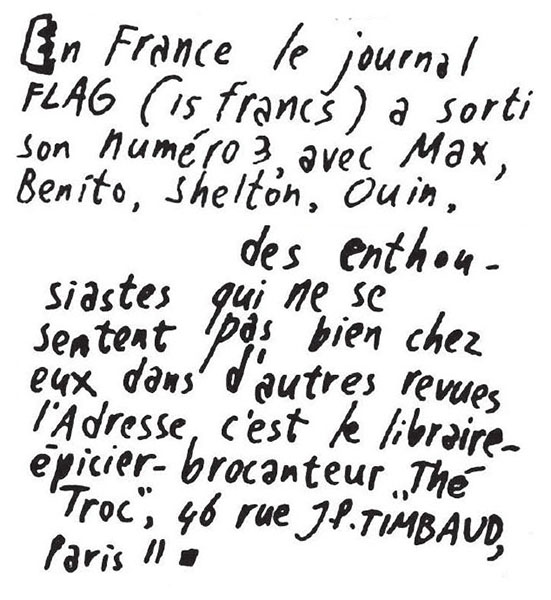 En France le journal
FLAG (15 francs) a sorti
son numéro 3, avec Max,
Benito, Shelton, Ouin,
des enthou-
siastes qui ne se
sentent pas bien chez
eux dans d'autres revues
l'Adresse, c'est le libraire-
épicier-brocanteur „Thé
Troc", 46 rue J.P. TIMBAUD,
Paris 11